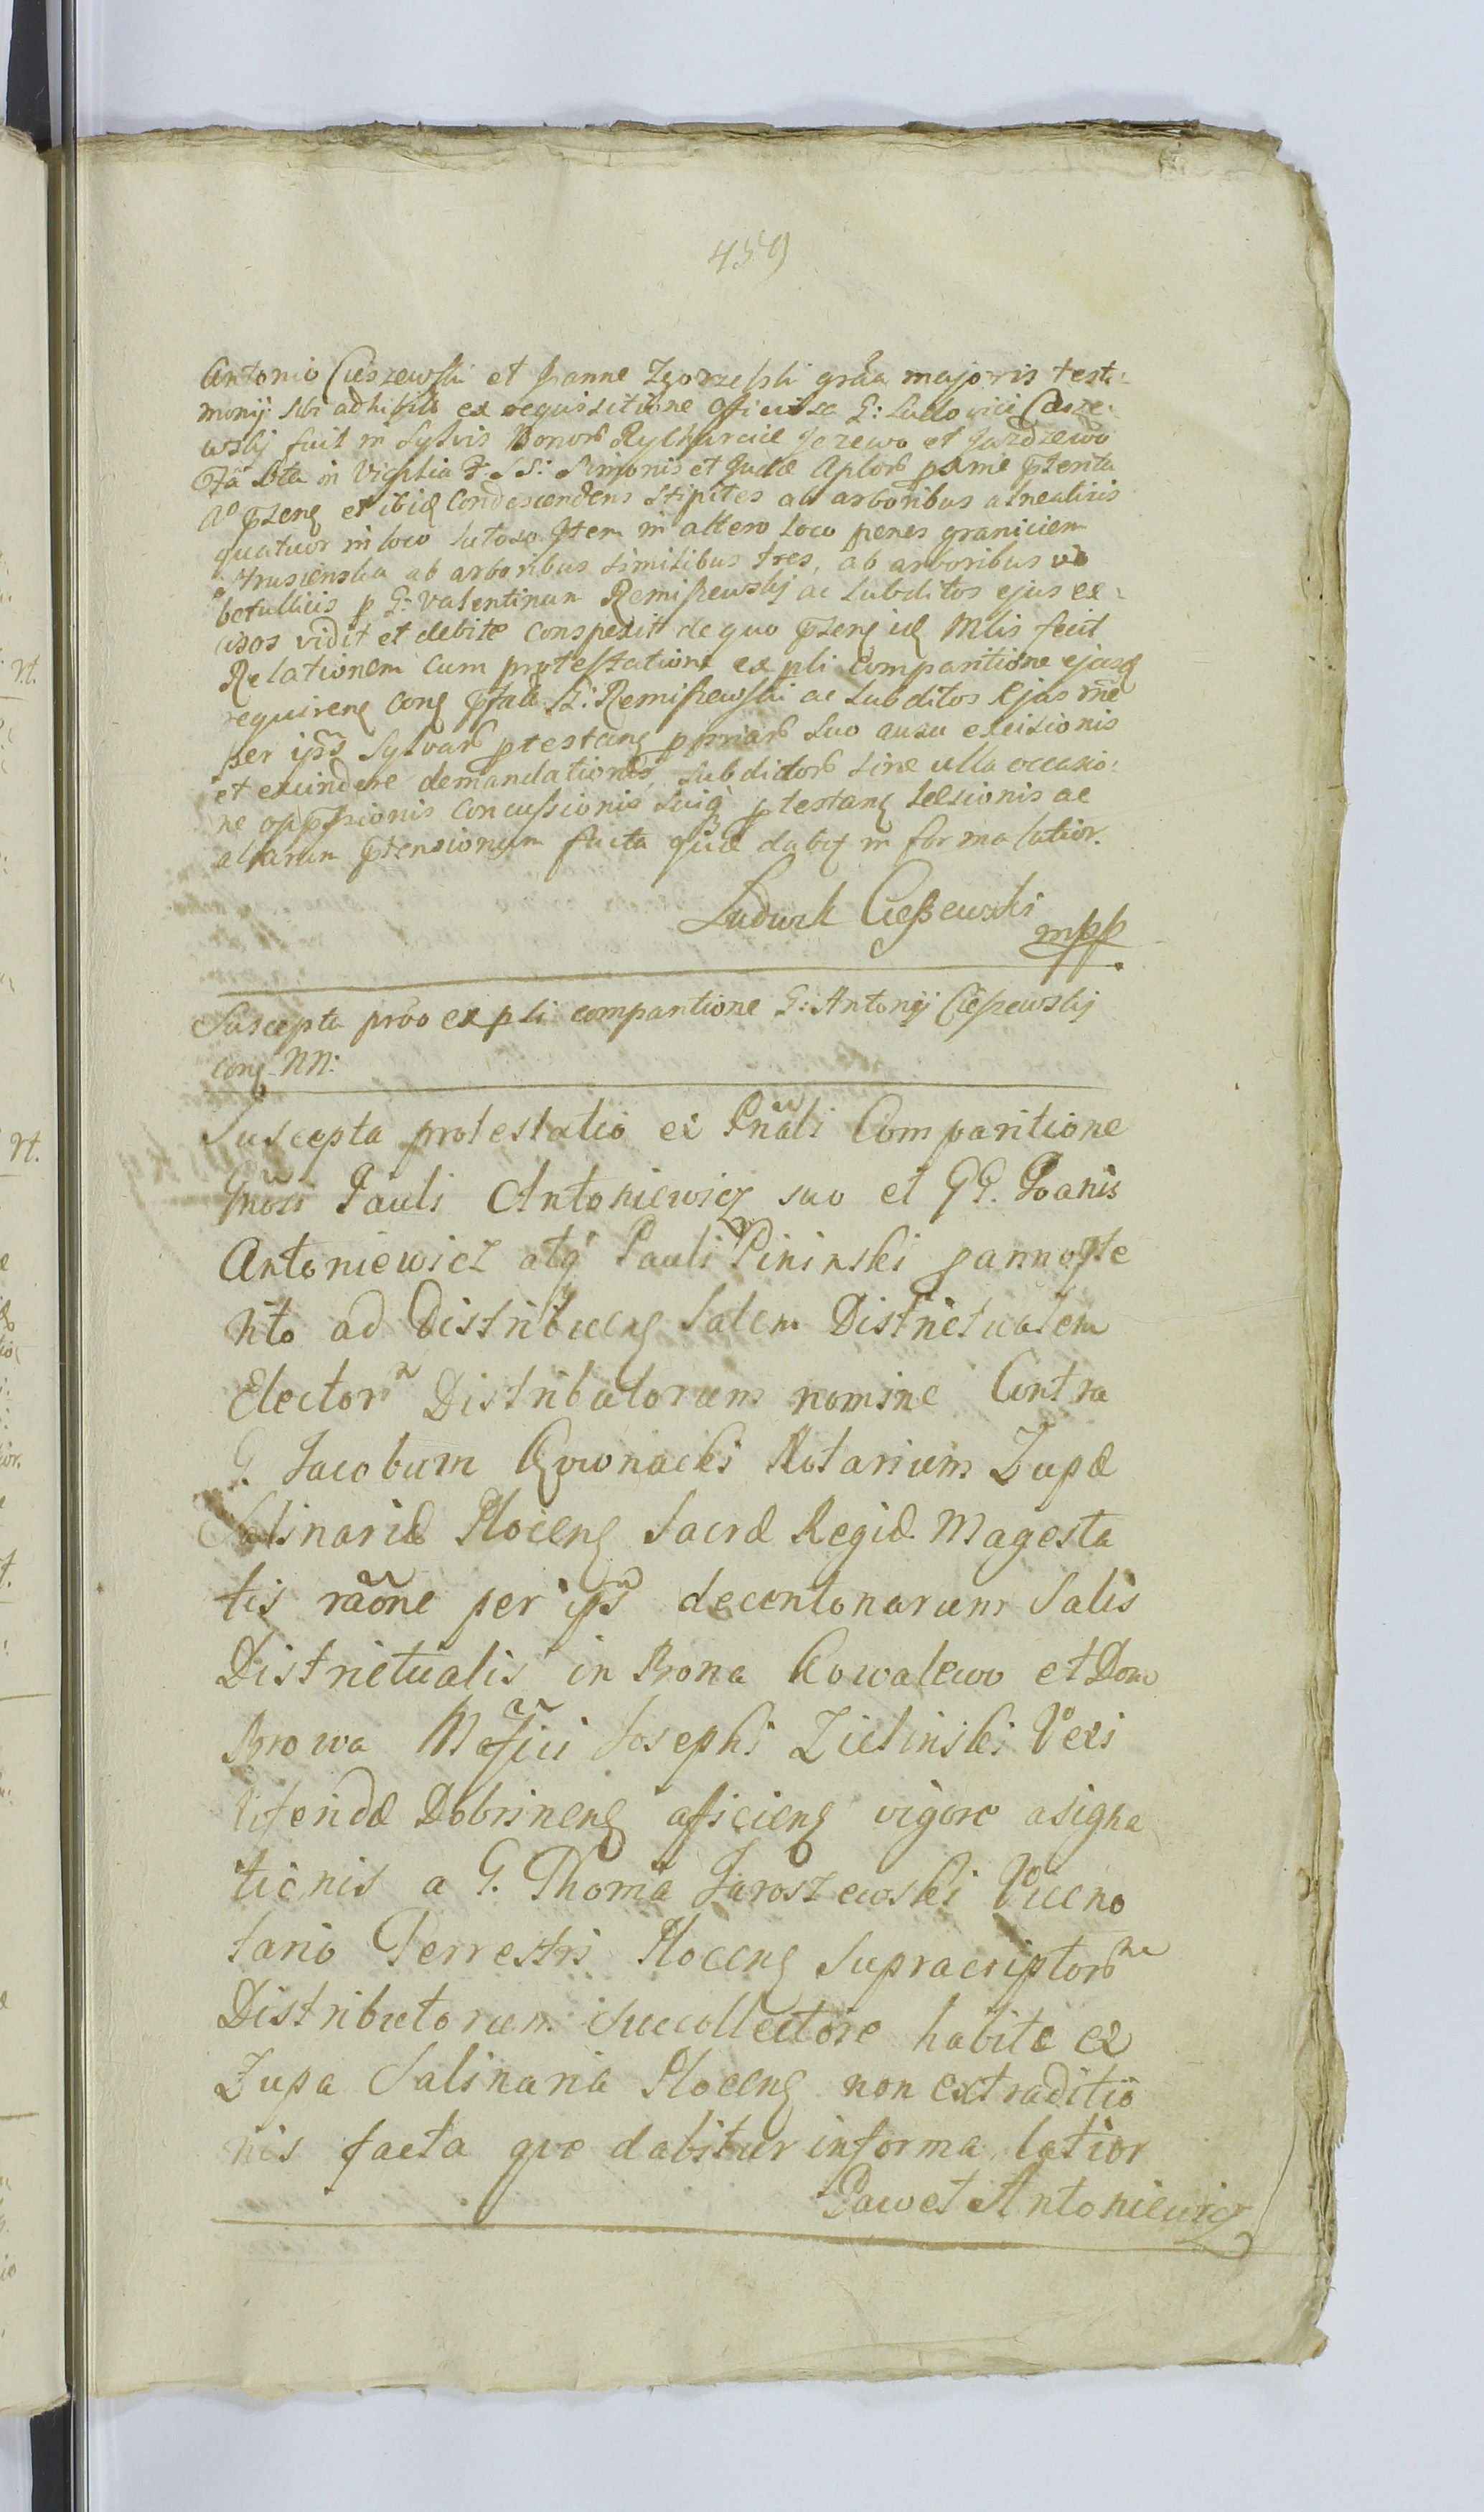 459
Antonio Cieszewski et Joanne Zgorzelski grãa majoris testi-
monij sibi adhibito ex requisitione officiosa G: Ludovici Ciesze-
wskij fuit in Sylvis Bonor Rycharcice Jezewo et Jazdzewo
Fa Sbta in Vigilia F: SS: Simonis et Judæ Aplor pxme pterita
Ao pseng et ibid Condescendens Stipites ab arboribus alnealiris
quatuor in loco lutoso Item in altero loco penes graniciem
Strusienska ab arboribus similibus tres, ab arboribus vo
betullicis p G: Valentinum Remiszewskij ac Subditos ejus ex-
cisos vidit et debite conspexit de quo pseng id Mlis fecit
Relationem cum protestatione ex pli comparitione ejusd
requireng cong pfat G: Remiszewski ac Subditos Ejus rñe
per ipss Sylvar ptestang ppriar suo ausu excisionis
et exindere demandationis, subditor sine ulla occasio-
ne oppssionis concussionis suiq ptestang læsionis ac
aliarum ptensionum facta quæ dabt in forma latior.
Ludwik Cieszewski
mpp
Suscepta prõo ex pli comparitione G: Antonij Cieszewskij
cong NN:
Suscepta protestatio ex Pnãli Comparitione
Gnosi Pauli Antoniewicz suo et GG. Joanis
Antoniewicz atq Pauli Pininski
nto ad Distribueng Salem Districtualem
Elector Distributorum nomine Contra
G. Jacobum Gownacki Notarium Zupæ
Salinariæ Ploceng Sacræ Regiæ Magesta
tis rãone per ips decentonarum Salis
Districtualis in Bona Kowalewo et Dom
Browa Mgfici Josephi Zielinski Vexi
liferidæ Dobrineng aficieng vigore asigna
tionis a G. Thoma Jaroszewski Viceno
tario Terrestri Ploceng Supracriptor
Distributorum Succollectore habitæ ex
Zupa Salinaria Ploceng non extraditio
nis facta quæ dabitur in forma latior
Paweł Antoniewicz